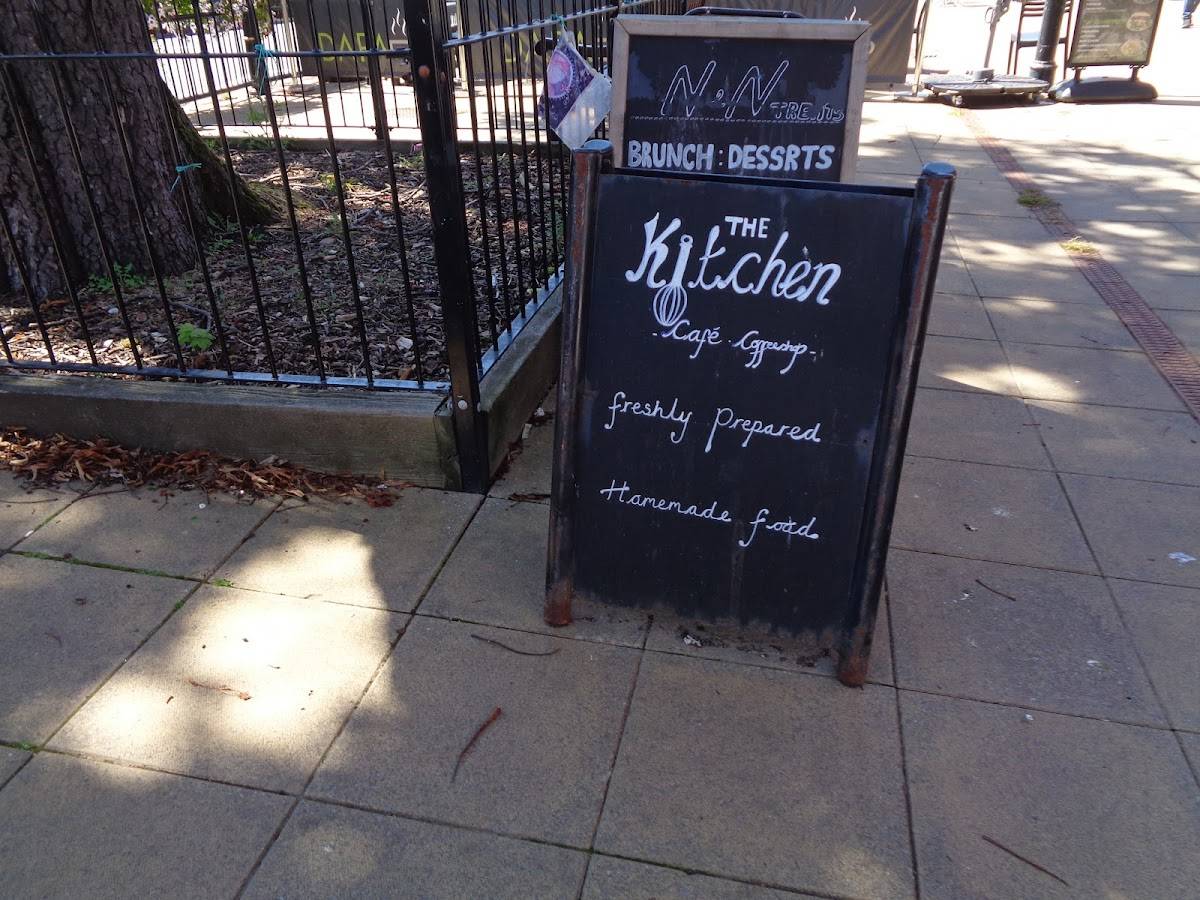 N·N TREATS
BRUNCH : DESSRTS
THE
Kitchen
- Café Coffeeshop -
freshly Prepared
Homemade food